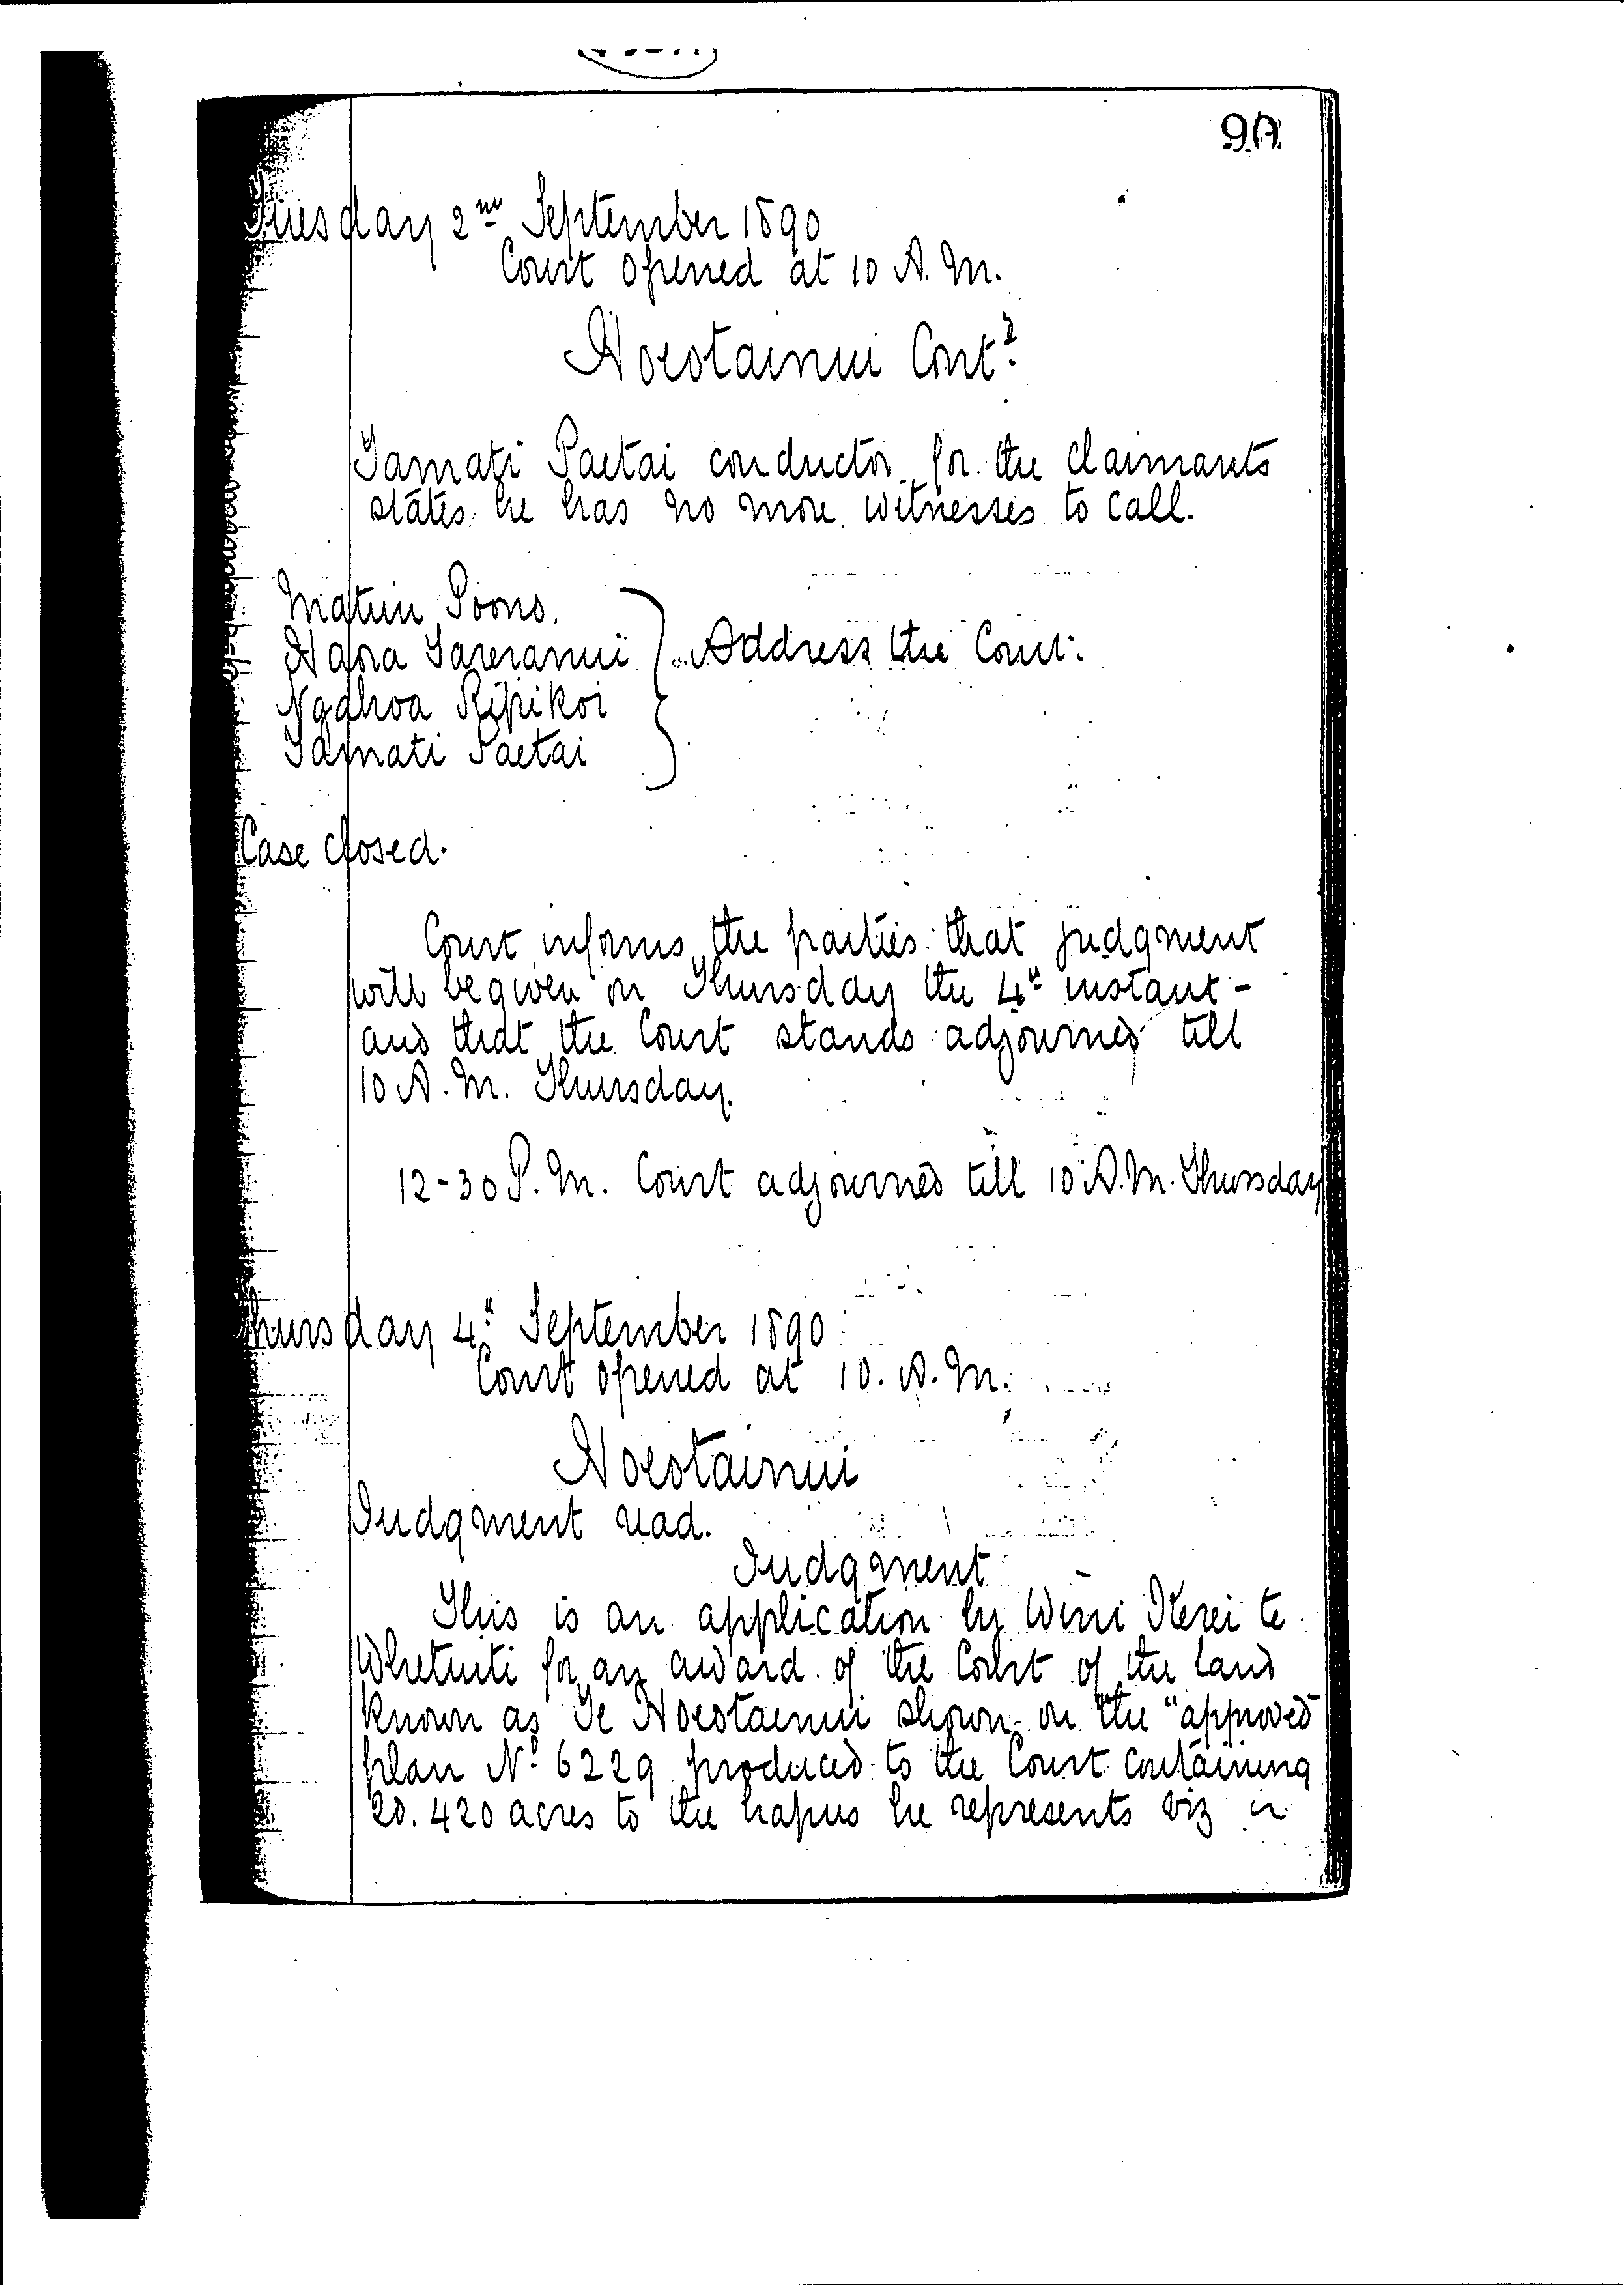 9A
Tuesday 2nd September 1890
Court opened at 10 A.M.
Horotainui Contd
Tamati Paetai conductor for the Claimants
states he has no more witnesses to call.
Matui
Address the Court.
Ngahoa Ripikoi
Tamati Paetai
Case closed.
Court informs the parties that judgment
will be given on Thursday the 4" instant -
and that the Court stands adjourned till
10 A.M. Thursday.
12-30 P.M. Court adjourned till 10 A.M. Thursday
Thursday 4" September 1890
Court opened at 10. A.M.
Horotainui
Judgment read.
Judgment
This is an application by Wini Kerei te
Whetuiti for an award of the Court of the land
known as Te Horotainui shown on the "approved"
plan No 6229 produced to the Court containing
20.420 acres to the hapus he represents viz